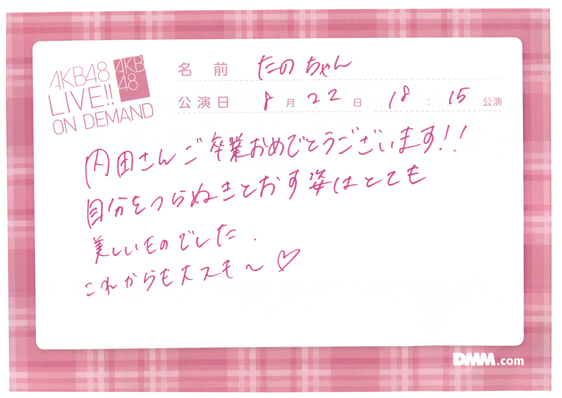 AKB48
LIVE!!
ON DEMAND
AKB
48
名 前 たのちゃん
公演日 8月22日 18:15公演
内田さんご卒業おめでとうございます!!
自分をつらぬきとおす姿はとても
美しいものでした.
これからも大スキ〜♡
DMM.com